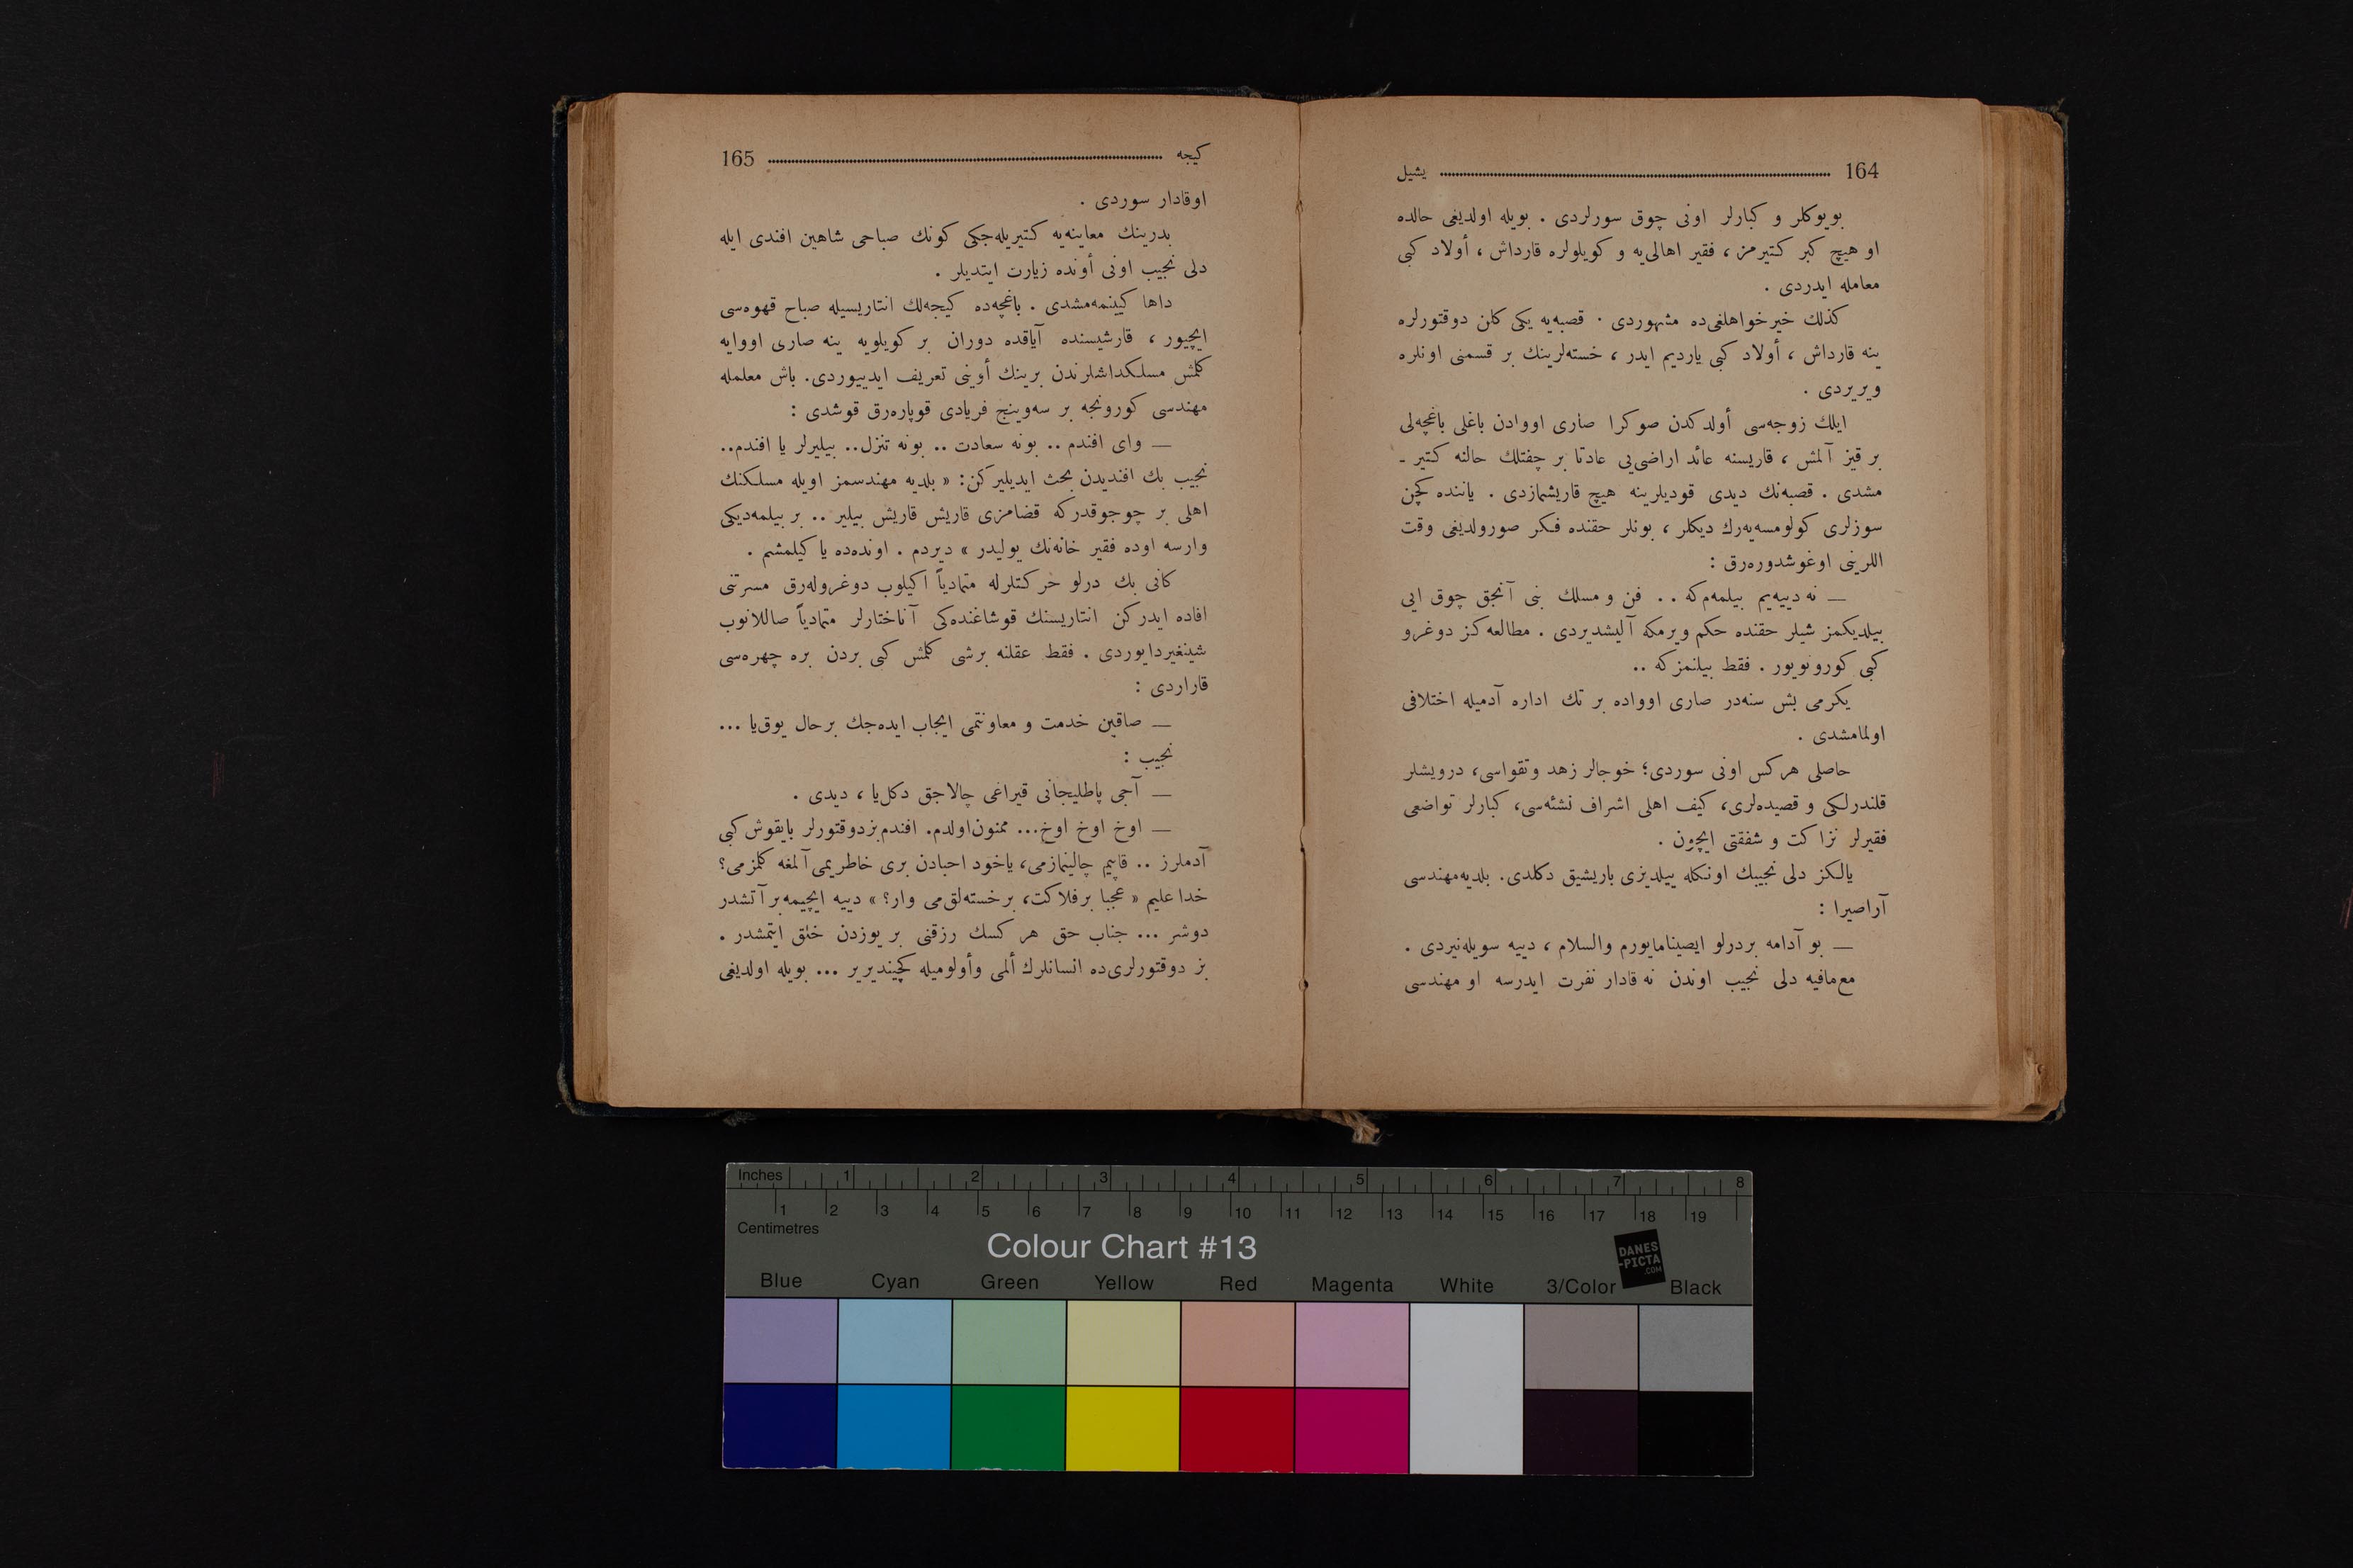 164 یشیل
بویوكلر و كبارلر اونی چوق سورلردی . بویله اولدیغی حالده
او هیچ كبر كتیرمز ، فقیر اهالی‌یه و كویلولره قارداش ، أولاد كبی
معامله ایدردی .
كذلك خیرخواهلغی‌ده مشهوردی . قصبه‌یه یكی كلن دوقتورلره
ینه قارداش ، أولاد كبی یاردیم ایدر ، خسته‌لرینك بر قسمنی اونلره
ویریردی .
ایلك زوجه‌سی أولدكدن صوكرا صاری اووادن باغلی باغچه‌لی
بر قیز آلمش ، قاریسنه عائد اراضی‌یی عادتا بر چفتلك حالنه كتیر ـ
مشدی . قصبه‌نك دیدی قودیلرینه هیچ قاریشمازدی . یاننده كچن
سوزلری كولومسه‌یه‌رك دیكلر ، بونلر حقنده فكر صورولدیغی وقت
اللرینی اوغوشدوره‌رق :
— نه دییه‌یم بیلمه‌م‌كه . . فن و مسلك بنی آنجق چوق ایی
بیلدیكمز شیلر حقنده حكم ویرمكه آلیشدیردی . مطالعه‌كز دوغرو
كبی كورونویور . فقط بیلنمزكه ..
یكرمی بش سنه‌در صاری اوواده بر تك اداره آدمیله اختلافی
اولمامشدی .
حاصلی هركس اونی سوردی؛ خوجالر زهد و تقواسی، درویشلر
قلندرلكی و قصیده‌لری، كیف اهلی اشراف نشئه‌سی، كبارلر تواضعی
فقیرلر نزاكت و شفقتی ایچون .
یالكز دلی نجیبك اونكله ییلدیزی باریشیق دكلدی. بلدیه‌مهندسی
آراصیرا :
— بو آدامه بردرلو ایصینامایورم والسلام ، دییه سویله‌نیردی .
مع‌مافیه دلی نجیب اوندن نه قادار نفرت ایدرسه او مهندسی
كیجه 165
اوقادار سوردی .
بدرینك معاینه‌یه كتیریله‌جكی كونك صباحی شاهین افندی ایله
دلی نجیب اونی أونده زیارت ایتدیلر .
داها كیینمه‌مشدی . باغچه‌ده كیجه‌لك انتاریسیله صباح قهوه‌سی
ایچیور ، قارشیسنده آیاقده دوران بر كویلویه ینه صاری اووایه
كلمش مسلكداشلرندن برینك أوینی تعریف ایدییوردی. باش معلمله
مهندسی كورونجه بر سه‌وینج فریادی قوپاره‌رق قوشدی :
— وای افندم .. بونه سعادت .. بونه تنزل.. بیلیرلر یا افندم..
نجیب بك افندیدن بحث ایدیلیركن: « بلدیه مهندسمز اویله مسلكنك
اهلی بر چوجوقدركه قضامزی قاریش قاریش بیلیر .. بر بیلمه‌دیكی
وارسه اوده فقیر خانه‌نك یولیدر » دیردم . اونده‌ده یا كیلمشم .
كانی بك درلو حركتلرله متمادیاً اكیلوب دوغروله‌رق مسرتنی
افاده ایدركن انتاریسنك قوشاغنده‌كی آناختارلر متمادیاً صاللانوب
شینغیردایوردی . فقط عقلنه برشی كلمش كبی بردن بره چهره‌سی
قاراردی :
— صاقین خدمت و معاونتمی ایجاب ایده‌جك برحال یوق‌یا ...
نجیب :
— آجی پاطلیجانی قیراغی چالاجق دكل‌یا ، دیدی .
— اوخ اوخ اوخ... ممنون‌اولدم. افندم‌بزدوقتورلر بایقوش كبی
آدملرز .. قاپیم چالینمازمی، یاخود احبادن بری خاطریمی آلمغه كلمزمی؟
خدا علیم « عجبا برفلاكت، برخسته‌لق‌می وار؟ » دییه ایچیمه‌بر آتشدر
دوشر ... جناب حق هر كسك رزقنی بر یوزدن خلق ایتمشدر .
بز دوقتورلری‌ده انسانلرك ألمی وأولومیله كچیندیریر ... بویله اولدیغی
Inches 1 2 3 4 5 6 7 8
1 2 3 4 5 6 7 8 9 10 11 12 13 14 15 16 17 18 19
Centimetres
Colour Chart #13
DANES
-PICTA
.COM
Blue Cyan Green Yellow Red Magenta White 3/Color Black